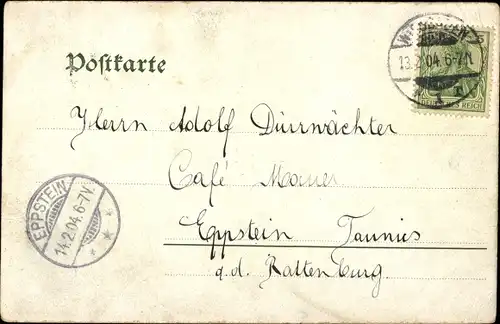 Postkarte
WIESBADEN
13.2.04.6-7N.
DEUTSCHES REICH
Herrn Adolf Dürrwächter
Café Mauer
Eppstein Taunus
a.d. Rattenburg
EPPSTEIN
14.2.04.6-7V.